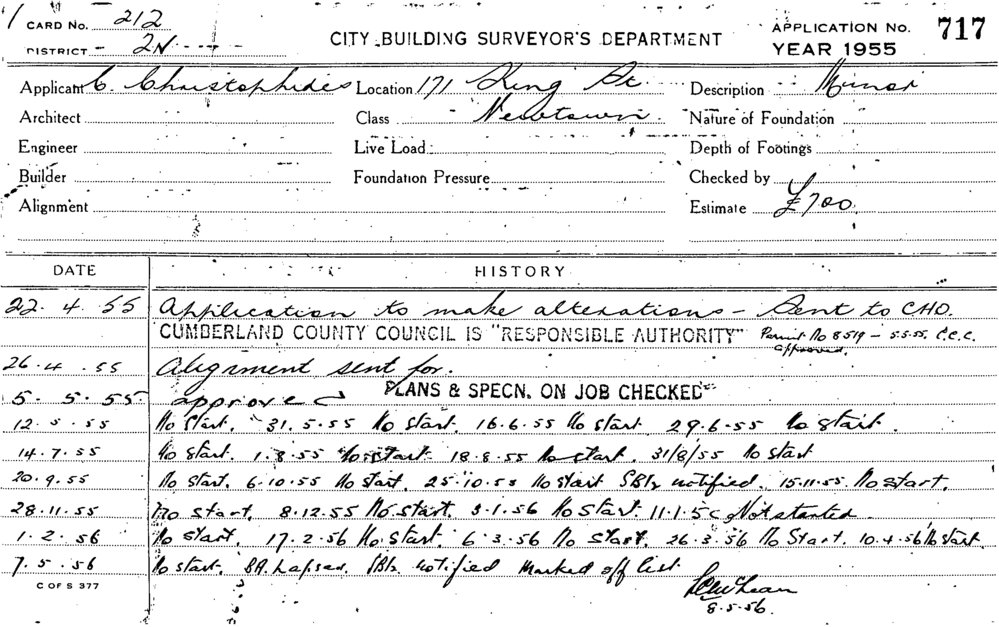 / CARD No. 212 CITY BUILDING SURVEYOR'S DEPARTMENT APPLICATION No. 717
DISTRICT - 2N YEAR 1955
Applicant C. Christophides Location 171 King St Description Minor
Architect Class Newtown. Nature of Foundation
Engineer Live Load Depth of Footings
Builder Foundation Pressure Checked by
Alignment Estimate £700.
DATE HISTORY
22. 4. 55 Application to make alterations - Sent to CHO.
CUMBERLAND COUNTY COUNCIL IS "RESPONSIBLE AUTHORITY" Permit No 8519 - 5.5.55. C.C.C.
approved.
26.4.55 Alignment sent for.
5. 5. 55 approved PLANS & SPECN. ON JOB CHECKED
12.5.55 No start. 31.5.55 No start. 16.6.55 No start. 29.6.55 No start.
14.7.55 No start. 1.8.55 No start. 18.8.55 No start. 31/8/55 No start
20.9.55 No start. 6.10.55 No start. 25.10.55 No start notified. 15.11.55. No start.
28.11.55 No start. 8.12.55 No start. 3.1.56 No start. 11.1.56 Not started.
1.2.56 No start. 17.2.56 No start. 6.3.56 No start. 26.3.56 No Start. 10.4.56 No start.
7.5.56 No start. BA. Lapsed. notified Marked off list
C OF S 377
8.5.56.